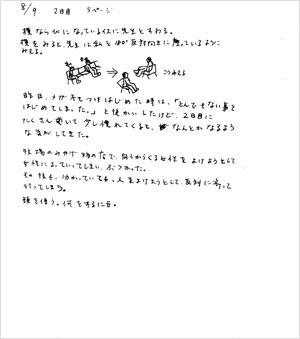 8/9　2日目　5ページ
横ならびになっているイスに先生とすわる。
横をみると先生は私と180°反対向きに座っているように
みえる。
こうみえる
昨日、メガネをつけはじめた時は、「とんでもない事を
はじめてしまった。」と後かいしたけど、2日目に
たくさん動いて少し慣れてくると、なんとかなるよう
な気がしてきた。
牧場のみやげ物の店で、向うからくる女性をよけようとして
女性によっていってしまい、ぶつかった。
その後も、分かっていても、人をよけようとして、反対に寄って
行ってしまう。
頭を使う。何をするにも。